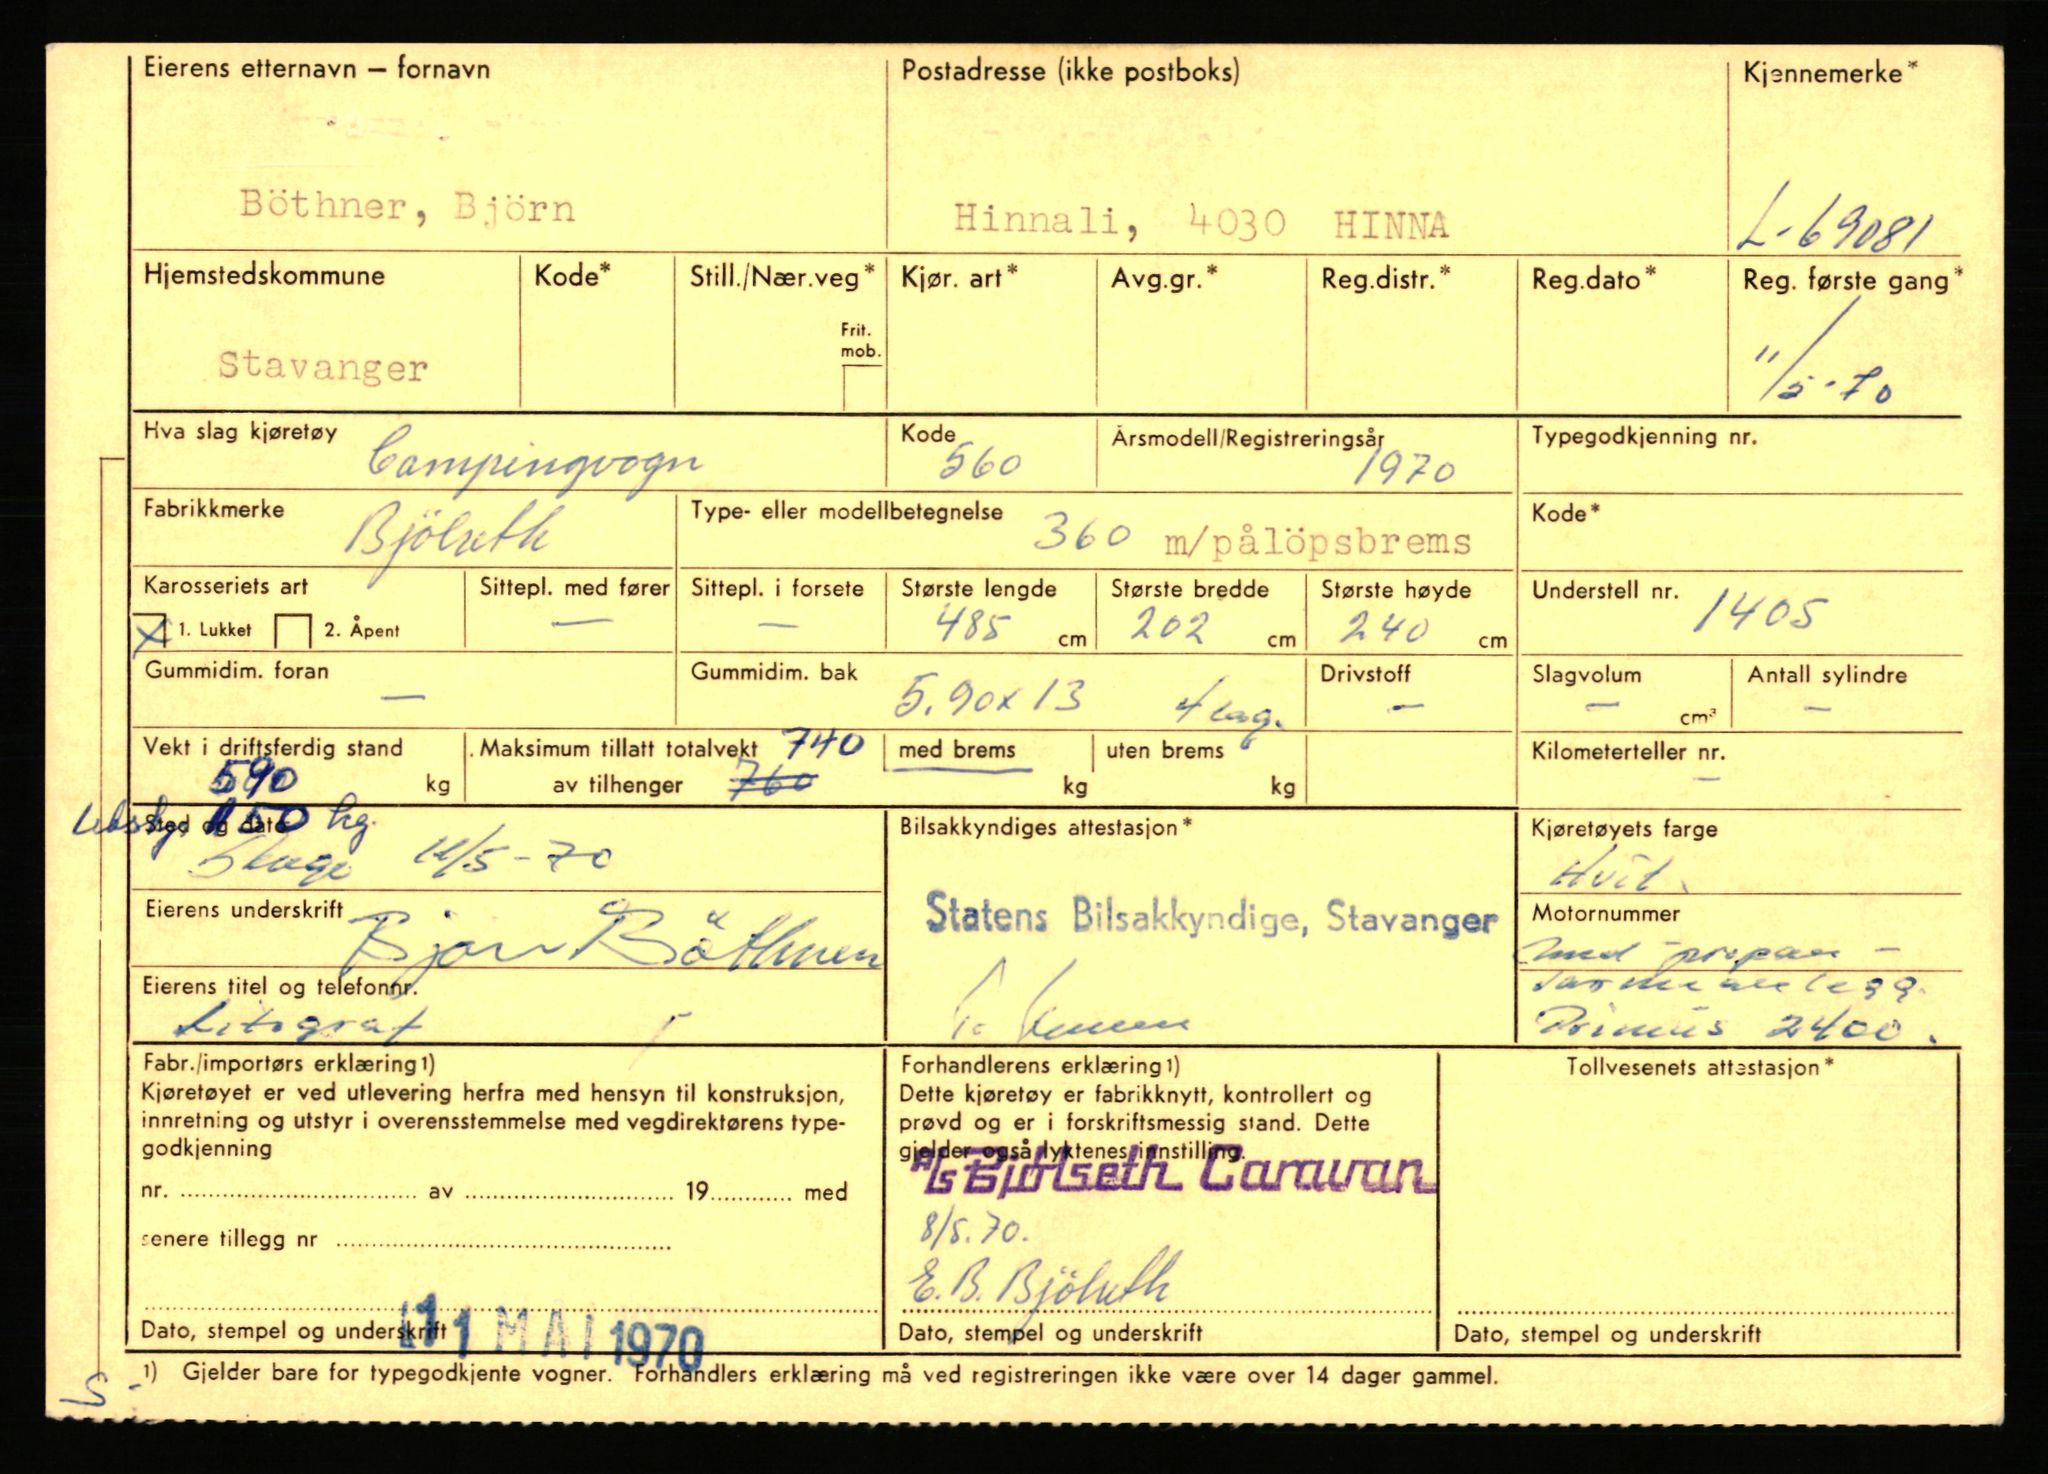 Eierens etternavn — fornavn
Postadresse (ikke postboks)
Kjennemerke*
Böthner, Björn
Hinnali, 4030 HINNA
L-69081
Hjemstedskommune
Kode*
Still./Nær.veg*
Kjør. art*
Avg.gr.*
Reg.distr.*
Reg.dato*
Reg. første gang*
Frit.
mob.
Stavanger
11/5-70
Hva slag kjøretøy
Campingvogn
Kode
560
Årsmodell/Registreringsår
1970
Typegodkjenning nr.
Fabrikkmerke
Bjölseth
Type- eller modellbetegnelse
360 m/pålöpsbrems
Kode*
Karosseriets art
X 1. Lukket 2. Åpent
Sittepl. med fører
—
Sittepl. i forsete
—
Største lengde
485 cm
Største bredde
202 cm
Største høyde
240 cm
Understell nr.
1405
Gummidim. foran
—
Gummidim. bak
5.90x13 4 lag.
Drivstoff
—
Slagvolum
— cm³
Antall sylindre
—
Vekt i driftsferdig stand
590 kg
Maksimum tillatt totalvekt 740
av tilhenger 760
med brems
kg
uten brems
kg
Kilometerteller nr.
—
150 kg.
Sted og dato
11/5-70
Bilsakkyndiges attestasjon*
Kjøretøyets farge
Hvit.
Eierens underskrift
Bjørn Böthner
Statens Bilsakkyndige, Stavanger
Motornummer
med propan-
varmeanlegg.
Primus 2400.
Eierens titel og telefonnr.
Litograf
Fabr./importørs erklæring1)
Kjøretøyet er ved utlevering herfra med hensyn til konstruksjon,
innretning og utstyr i overensstemmelse med vegdirektørens type-
godkjenning
nr. av 19 med
senere tillegg nr
11 MAI 1970
Dato, stempel og underskrift
Forhandlerens erklæring1)
Dette kjøretøy er fabrikknytt, kontrollert og
prøvd og er i forskriftsmessig stand. Dette
gjelder også lyktenes innstilling.
A/S Bjölseth Caravan
8/5.70.
E. B. Bjölseth
Dato, stempel og underskrift
Tollvesenets attestasjon*
Dato, stempel og underskrift
1) Gjelder bare for typegodkjente vogner. Forhandlers erklæring må ved registreringen ikke være over 14 dager gammel.